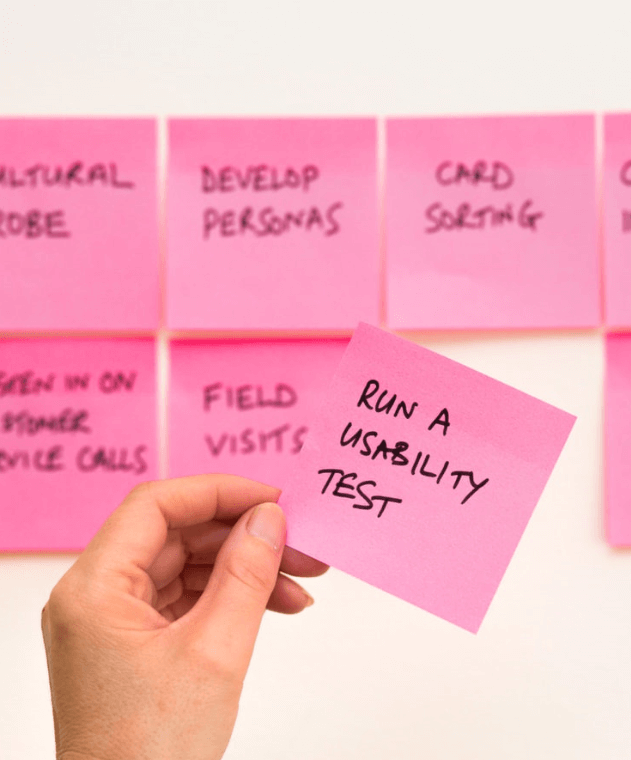 LTURAL
OBE
DEVELOP
PERSONAS
CARD
SORTING
IN ON
TOMER
VICE CALLS
FIELD
VISITS
RUN A
USABILITY
TEST